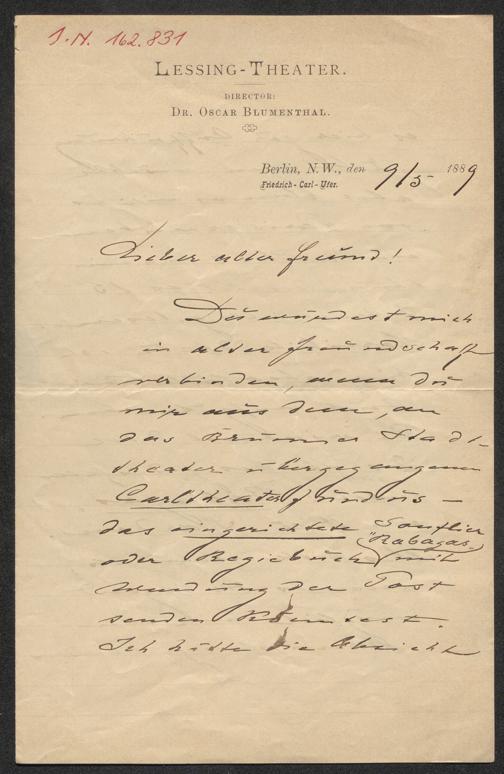 I.N. 162.831
LESSING-THEATER.
DIRECTOR:
DR. OSCAR BLUMENTHAL.
Berlin, N.W., den 9/5 1889
Friedrich-Carl-Ufer.
Lieber alter Freund!
Du würdest mich
in alter Freundschaft
verbinden, wenn Du
mir aus dem, an
das Brünner Stadt-
theater übergegangenen
Carltheaterfundus –
das eingerichtete Soufflier
"Rabagas"
oder Regiebuch mit
wendung der Post
senden könntest.
Ich hätte die Absicht